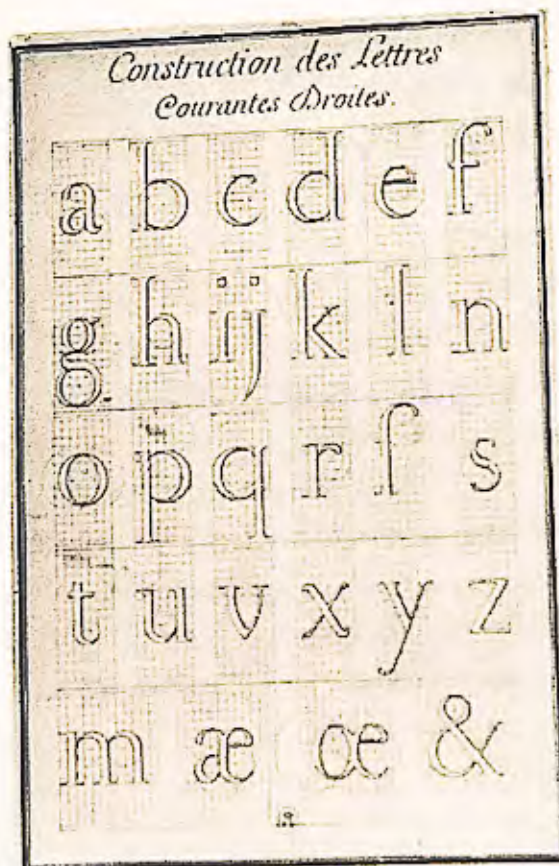 Construction des Lettres
Courantes Droites.
a b c d e f
g h ij k l n
o p q r ſ s
t u v x y z
m æ œ &